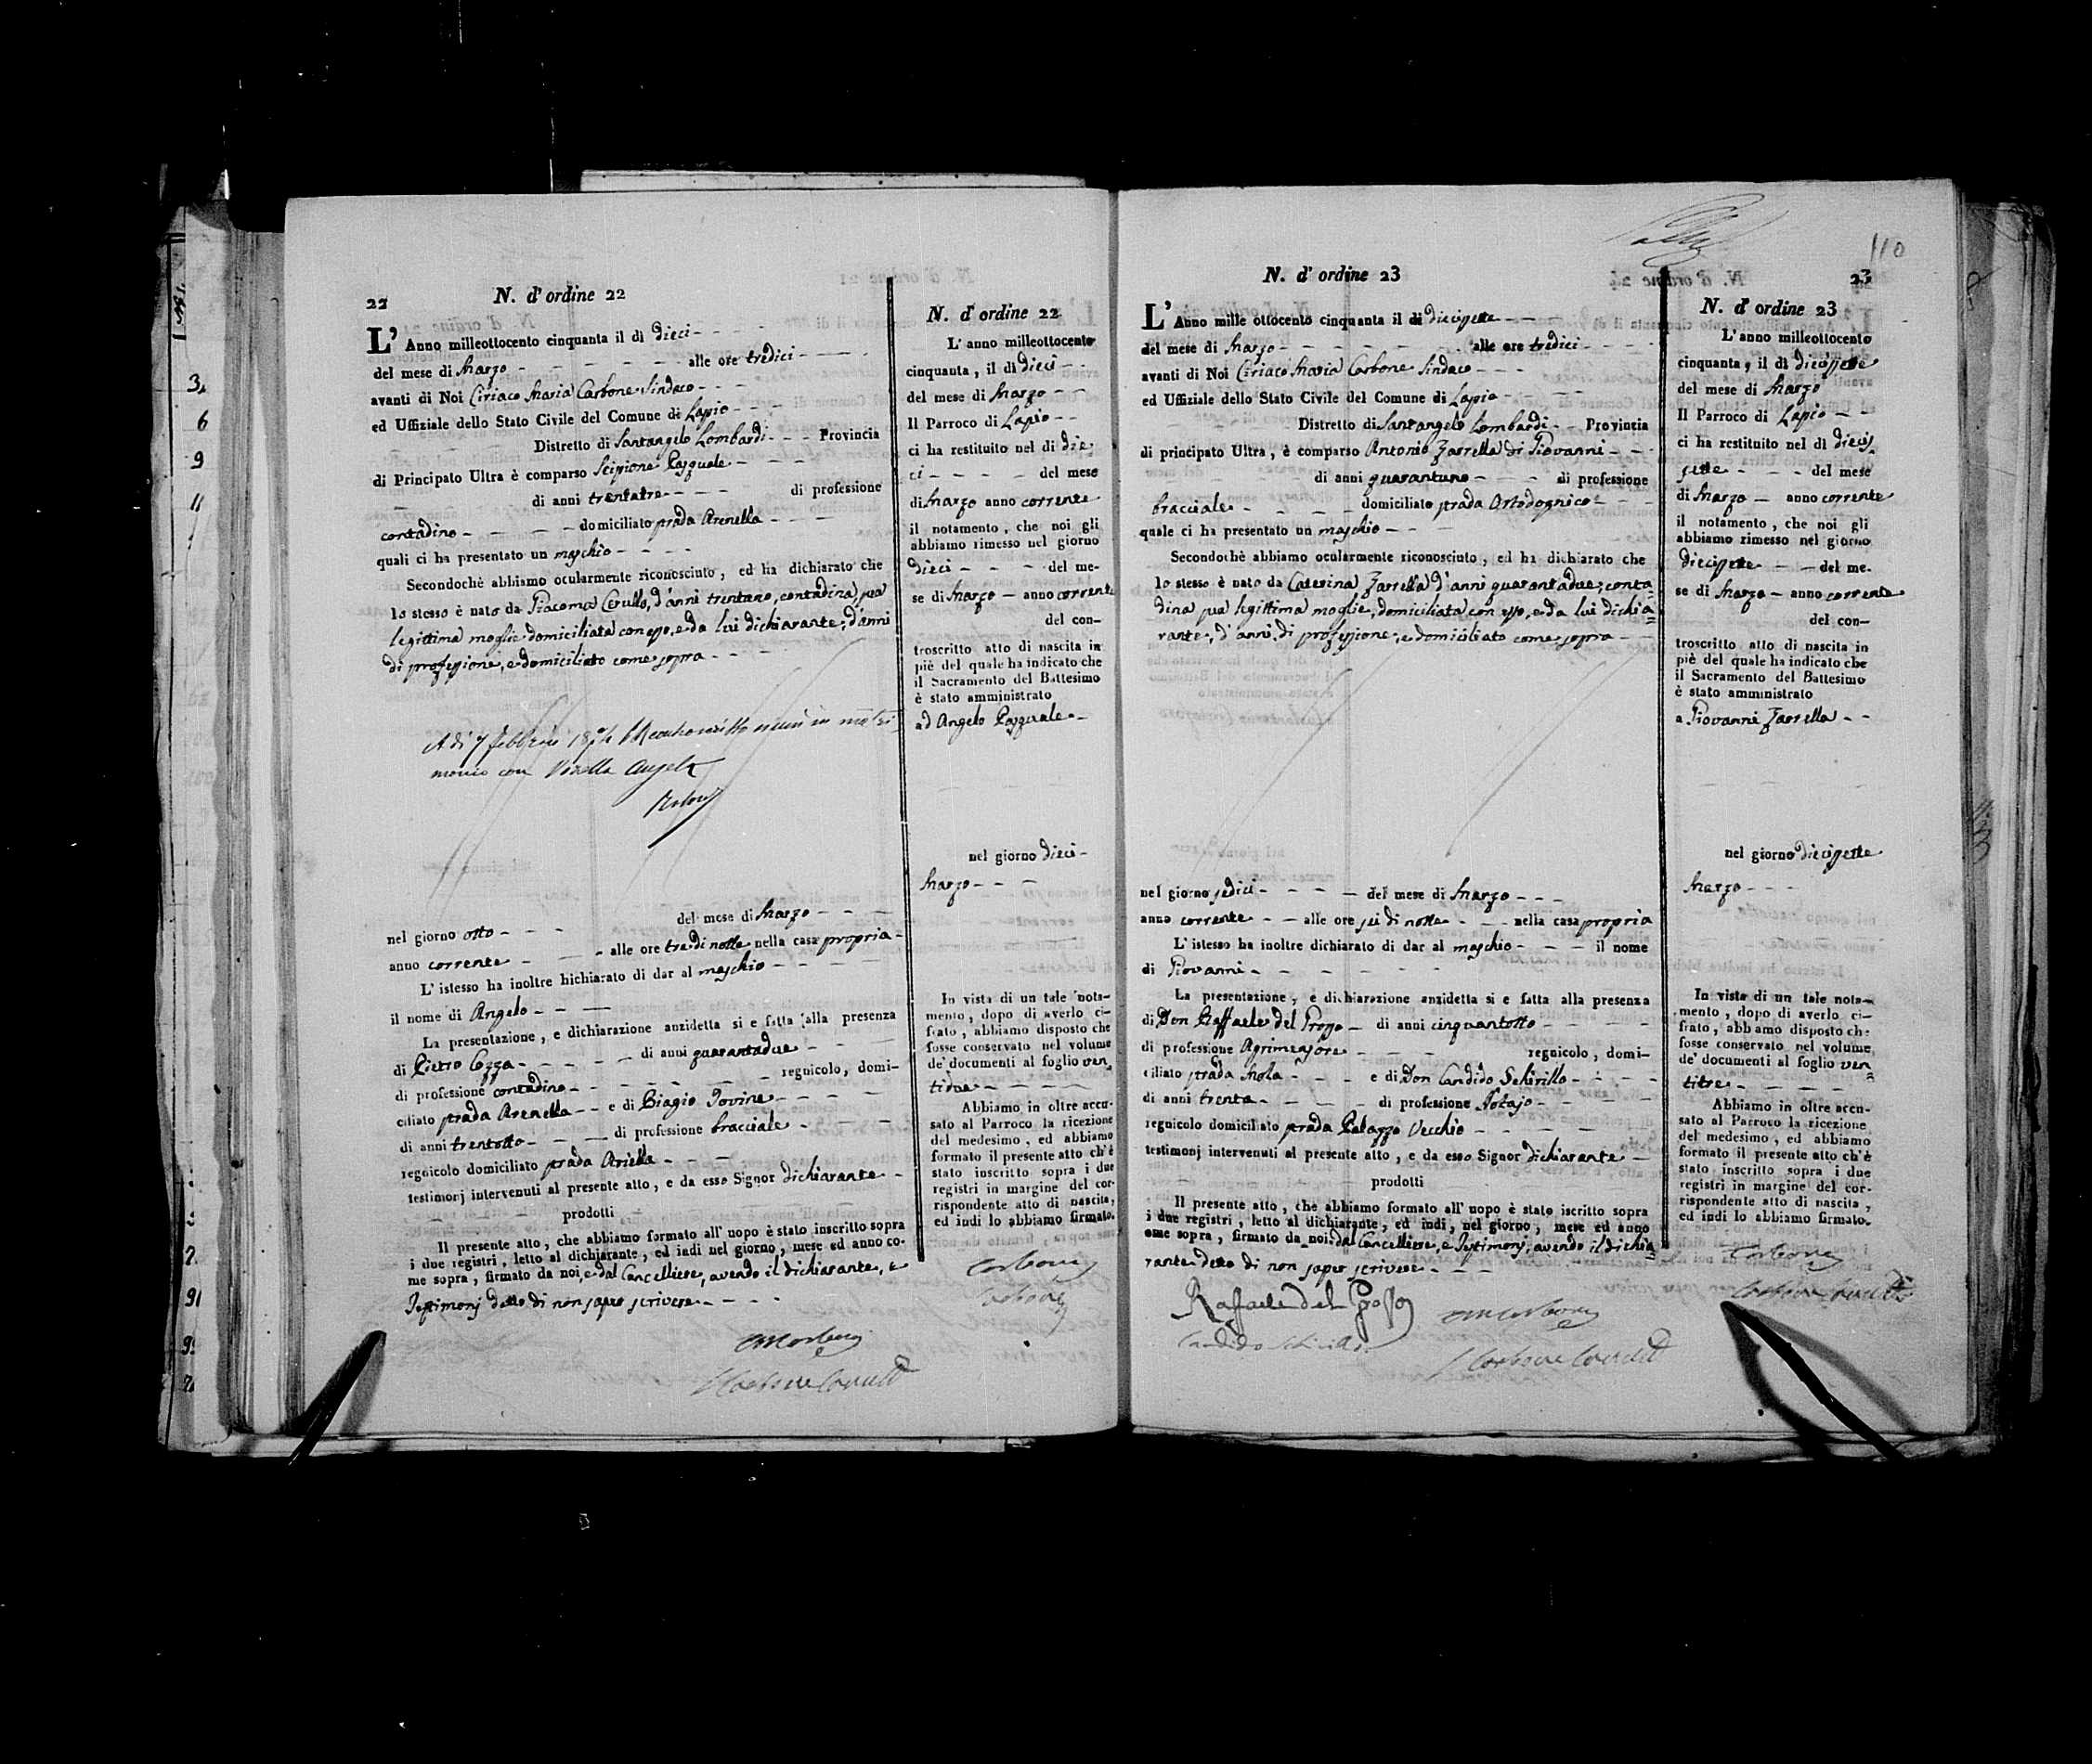 22
N. d' ordine 22
L' Anno milleottocento cinquanta il dì dieci
del mese di Marzo alle ore tredici
avanti di Noi Ciriaco Maria Carbone Sindaco
ed Uffiziale dello Stato Civile del Comune di Lapio
Distretto di Santangelo Lombardi Provincia
di Principato Ultra è comparso Scipione Pasquale
di anni trentatre di professione
contadino domiciliato strada Arenella
quali ci ha presentato un maschio
Secondochè abbiamo ocularmente riconosciuto, ed ha dichiarato che
lo stesso è nato da Giacoma Cerullo, d'anni trentano, contadina, sua
legittima moglie domiciliata con esso, e da lui dichiarante, d'anni
di professione, e domiciliato come sopra
A di 7 febbraio unì in matri
monio con Angela
nel giorno otto del mese di Marzo
anno corrente alle ore tre di notte nella casa propria
L' istesso ha inoltre hichiarato di dar al maschio
il nome di Angelo
La presentazione, e dichiarazione anzidetta si e fatta alla presenza
di Pietro Cozza di anni quarantadue
di professione contadino regnicolo, domi-
ciliato strada Arenella e di Biagio Iovine
di anni trentotto di professione bracciale
regnicolo domiciliato strada Ariella
testimonj intervenuti al presente atto, e da esso Signor dichiarante
prodotti
Il presente atto, che abbiamo formato all' uopo è stato inscritto sopra
i due registri, letto al dichiarante, ed indi nel giorno, mese ed anno co-
me sopra, firmato da noi, e dal Cancelliere, avendo il dichiarante, e
Testimonj detto di non saper scrivere
Carbone
N. d' ordine 22
L' anno milleottocento
cinquanta, il dì dieci
del mese di Marzo
Il Parroco di Lapio
ci ha restituito nel dì die-
ci del mese
di Marzo anno corrente
il notamento, che noi gli
abbiamo rimesso nel giorno
dieci del me-
se di Marzo anno corrente
del con-
troscritto atto di nascita in
piè del quale ha indicato che
il Sacramento del Battesimo
è stato amministrato
ad Angelo Pasquale
nel giorno dieci
Marzo
In vista di un tale nota-
mento, dopo di averlo ci-
frato, abbiamo disposto che
fosse conservato nel volume
de' documenti al foglio ven
tidue
Abbiamo in oltre accu-
sato al Parroco la ricezione
del medesimo, ed abbiamo
formato il presente atto ch'è
stato inscritto sopra i due
registri in margine del cor-
rispondente atto di nascita,
ed indi lo abbiamo firmato.
Carbone
Carbone
110
23
N. d' ordine 23
L' Anno mille ottocento cinquanta il dì diecisette
del mese di Marzo alle ore tredici
avanti di Noi Ciriaco Maria Carbone Sindaco
ed Uffiziale dello Stato Civile del Comune di Lapio
Distretto di Santangelo Lombardi Provincia
di principato Ultra, è comparso Antonio Zarrella di Giovanni
di anni quarantuno di professione
bracciale domiciliato strada Ortodognico
quale ci ha presentato un maschio
Secondochè abbiamo ocularmente riconosciuto, ed ha dichiarato che
lo stesso è nato da Caterina Zarrella d'anni quarantadue, conta
dina sua legittima moglie, domiciliata con esso, e da lui dichia
rante, d'anni, di professione, e domiciliato come sopra
nel giorno sedici del mese di Marzo
anno corrente alle ore sei di notte nella casa propria
L' istesso ha inoltre dichiarato di dar al maschio il nome
di Giovanni
La presentazione, e dichiarazione anzidetta si e fatta alla presenza
di Don Raffaele del Grosso di anni cinquantotto
di professione Agrimensore regnicolo, domi-
ciliato strada Mola e di Don Candido Schirillo
di anni trenta di professione Notajo
regnicolo domiciliato strada Palazzo Vecchio
testimonj intervenuti al presente atto, e da esso Signor dichiarante
prodotti
Il presente atto, che abbiamo formato all' uopo è stato iscritto sopra
i due registri, letto al dichiarante, ed indi, nel giorno, mese ed anno
ome sopra, firmato da noi dal Cancelliere, e Testimonj, avendo il dichia
rante detto di non saper scrivere
Raffaele del Grosso
Candido Schirillo
N. d' ordine 23
L' anno milleottocento
cinquanta, il dì diecissette
del mese di Marzo
Il Parroco di Lapio
ci ha restituito nel dì diecis
sette del mese
di Marzo anno corrente
il notamento, che noi gli
abbiamo rimesso nel giorno
diecissette del me-
se di Marzo anno corrente
del con-
troscritto atto di nascita in
piè del quale ha indicato che
il Sacramento del Battesimo
è stato amministrato
a Giovanni Zarrella
nel giorno diecisette
Marzo
In vista di un tale nota-
mento, dopo di averlo ci-
frato, abbiamo disposto che
fosse conservato nel volume
de' documenti al foglio ven
titre
Abbiamo in oltre accu-
sato al Parroco la ricezione
del medesimo, ed abbiamo
formato il presente atto ch'è
stato inscritto sopra i due
registri in margine del cor-
rispondente atto di nascita,
ed indi lo abbiamo firmato.
Carbone